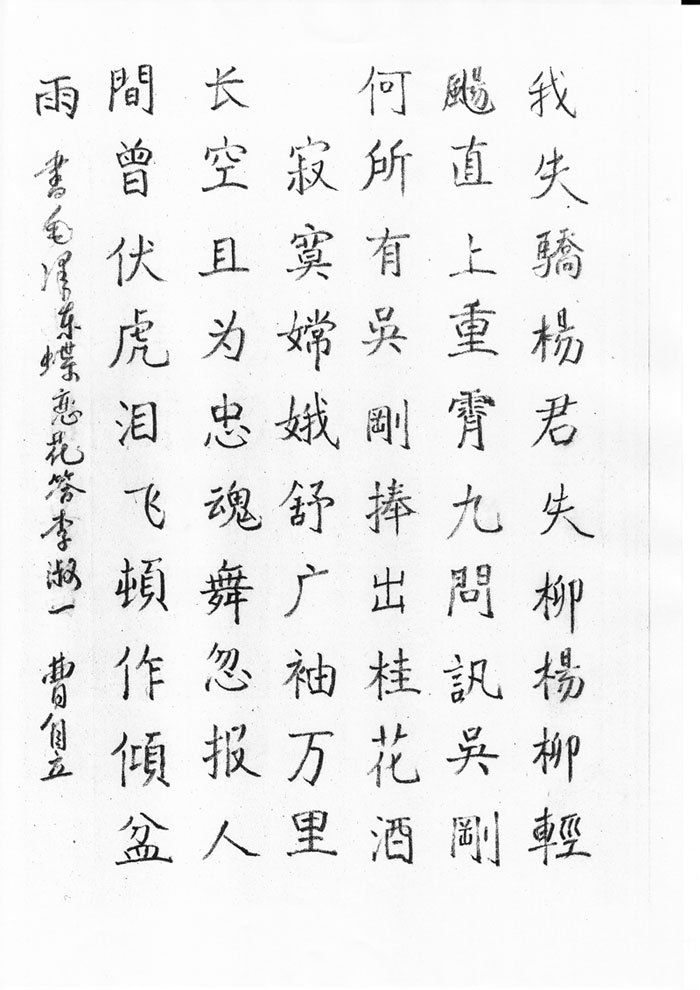 我失驕楊君失柳楊柳輕
颺直上重霄九問訊吳剛
何所有吳剛捧出桂花酒
寂寞嫦娥舒广袖万里
长空且为忠魂舞忽报人
間曾伏虎泪飞頓作傾盆
雨 書毛泽东蝶恋花答李淑一 曹自立